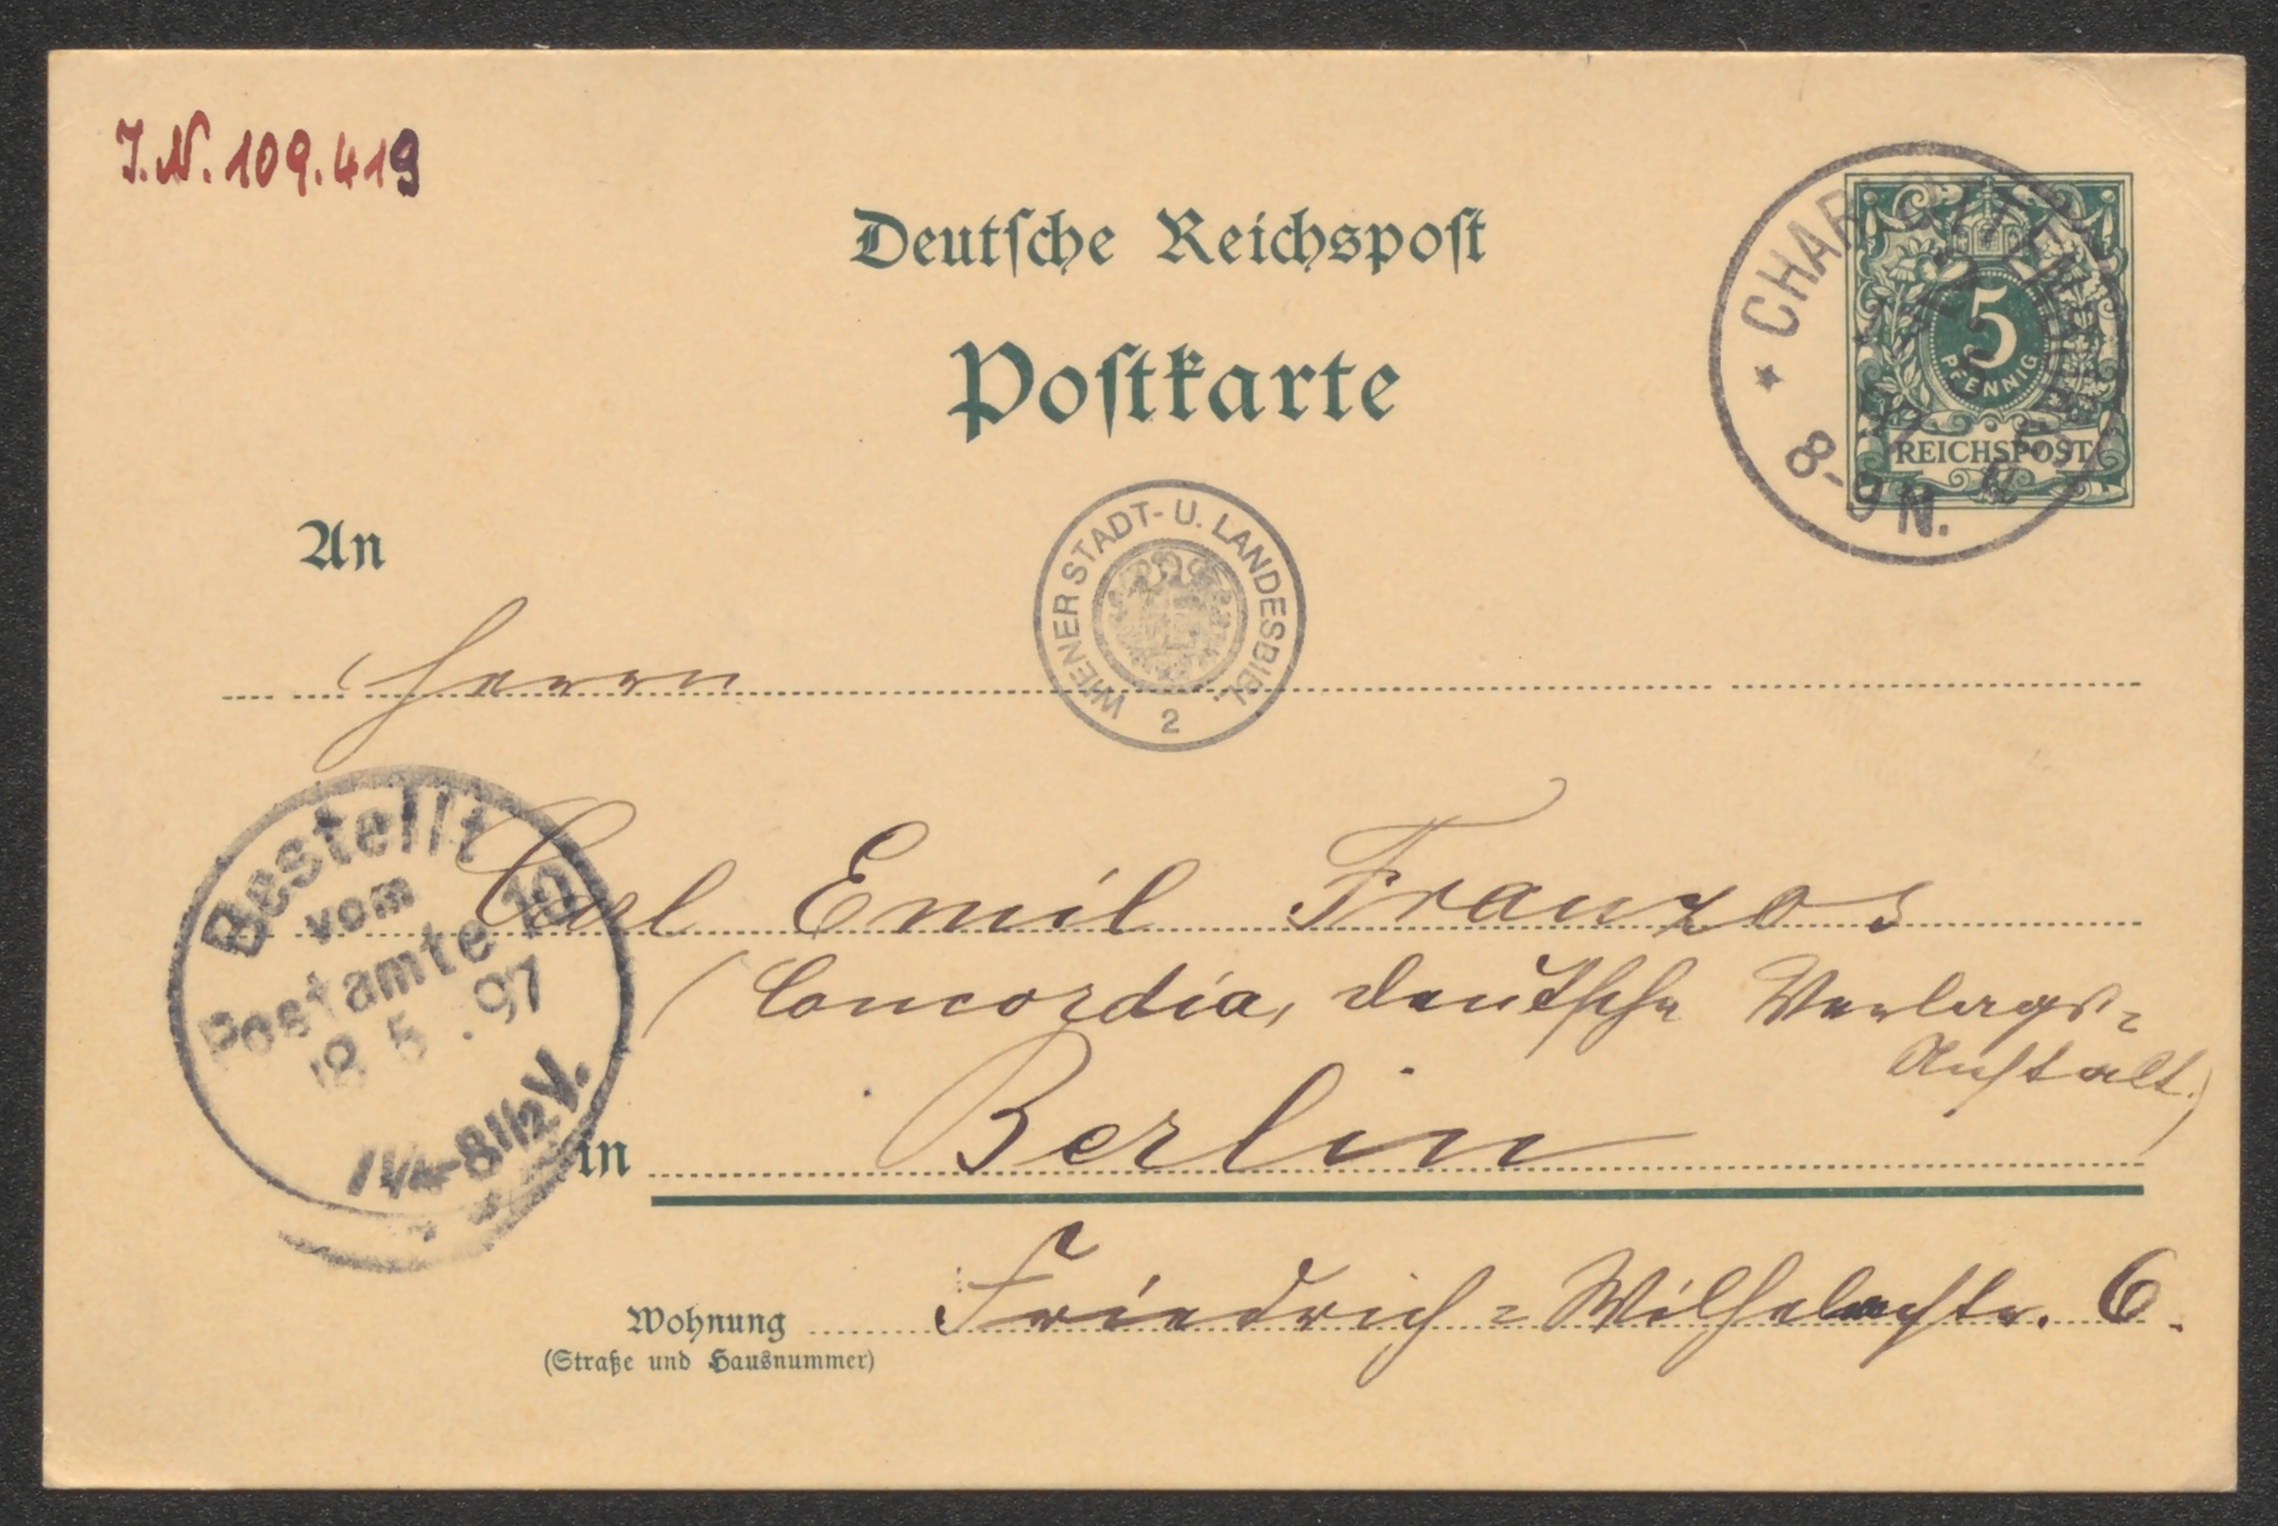 J.N. 109.419
Deutsche Reichspost
Postkarte
CHARLOTTENBURG
8-9 N.
5
PFENNIG
REICHSPOST
An
WIENER STADT- U. LANDESBIBL.
2
Herrn
Bestellt
vom
Postamte 10
12 5 . 97
7¼-8½V.
Carl Emil Franzos
(Concordia, deutsche Verlags-
Anstalt.)
in Berlin
Wohnung Friedrich-Wilhelmstr. 6.
(Straße und Hausnummer)